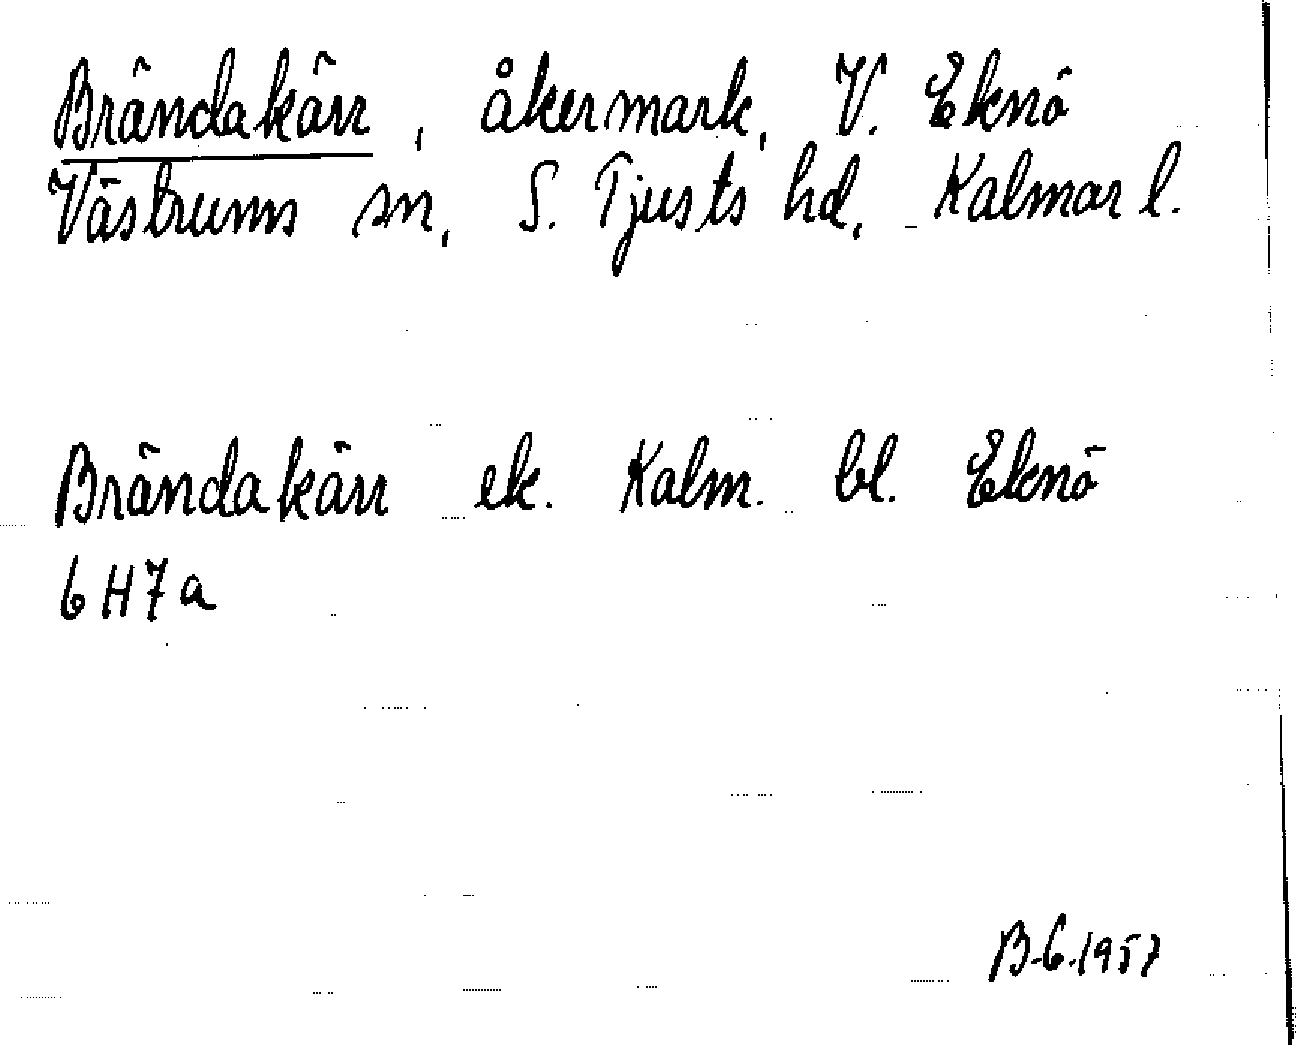 Brändakärr, åkermark, V. Eknö
Västrums sn, S. Tjusts hd, Kalmar l.
Brändakärr ek. Kalm. bl. Eknö
6H7a
B-G-1957